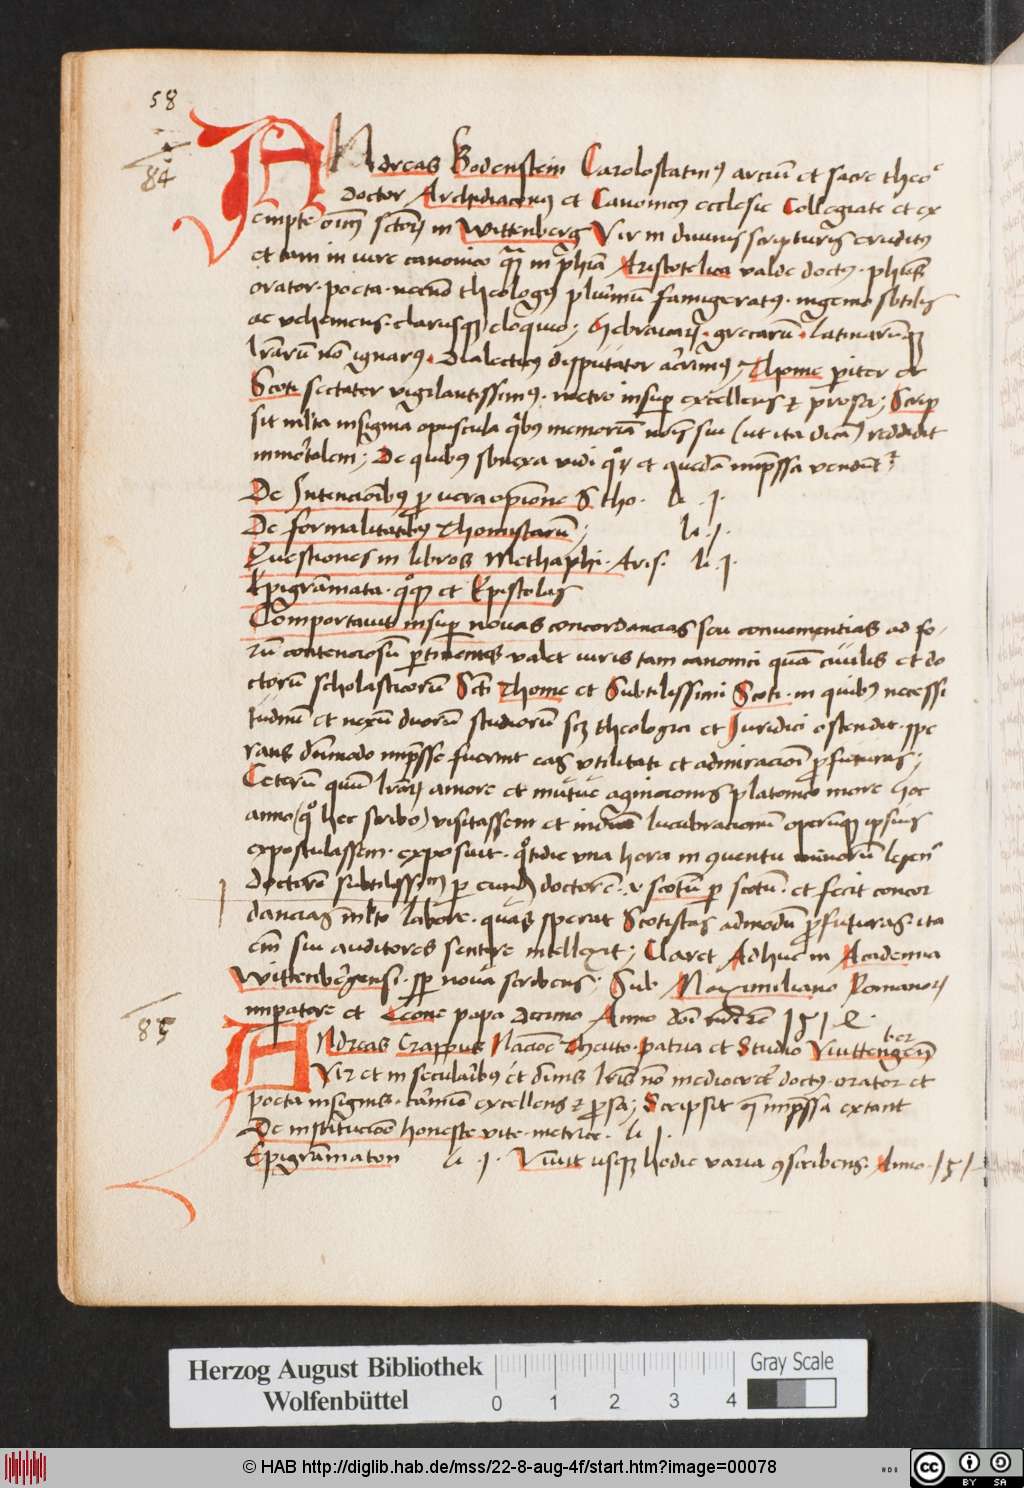 58
84
ANdreas Bodenstein Carolostatinꝰ arciũ et sacre theoᵉ
Doctor Archidiaconꝰ et Canonicꝰ ecclesie Collegiate et ex
empte oĩm sctorꝝ in Wittenberg Vir in diuinis scripturis eruditꝰ
et tam in iure canonico qͣꝫ in phīa Aristotelica valde doctꝰ · phũs
orator · poeta · necnõ theologꝰ plurimũ famigeratꝰ · ingenio sbtilis
ac vehemens · clarusqꝫ eloquio; Hebraicarꝝ · grecarũ · latinarũqꝫ
lrãrũ nõ ignarꝰ · Dialecticꝰ disputator acrimꝰ; Thome pariter et
Scoti sectator vigilantissimꝰ · metro insuꝑ excellens et prosa; Scrip
sit mlta insignia opuscula qͥbꝰ memoriã nois sui (ut ita dicã) reddidit
immortalem; De quibꝰ sbnexa vidi et quedã impssa vendunt
De Intencionibꝰ ꝓ vera opinione S tho · li · j ·
De formalitatibꝰ Thomistarũ; li · j ·
Questiones in libros Methaphi · Aris · li · j ·
Epigrãmata · qͦqꝫ et Epistolas
Comportauit insuꝑ nouas concordancias seu conuenientias ad fo-
rũ contenciosũ ꝑtinentes valet iuris tam canonici quã ciuilis et do
ctorũ scholasticorũ Scti Thome et Subtilissimi Scoti · in quibꝰ necessi
tudinẽ et nexũ duorũ studiorũ scꝫ theologici et Juridici ostendit · spe
rans dũmodo impsse fuerint eas vtilitati et admiracioni ꝓfuturas;
Ceterũ quũ lrarꝝ amore et mutue agnicionis platonico more hoc
anno (qͦ hec scribo) visitassem et lucubracionũ operũqꝫ ipsius
expostulassem · exposuit · qͦtidie vna hora in ꝯuentu minorũ legen
doctorẽ subtilissimũ ꝑ eundẽ doctorẽ · v scotũ ꝑ scotũ · et fecit concor
dancias mlto labore · quas sperat Scotistas admodũ ꝓfuturas · ita
em̃ sui auditores sentire intellexit; Claret Adhuc in Academia
Wittenbergensi · sꝑ noua scribens; Sub Maximiliano Romanorꝝ
imperatore et Leone papa decimo Anno dñi 151
85
ANdreas Crappus Nacioẽ Theuto · patria et Studio Viuttengeñ
ber
Vir et in secularibꝰ et diuinis lrĩs nõ mediocriter doctꝰ · orator et
poeta insignis · carmine excellens et prosa; Scripsit q̃ impssa extant
De institucioẽ honeste vite · metrice · li j ·
Epigrãmaton li · j · Viuit usqꝫ hodie varia ꝯscribens · Anno · 151
Herzog August Bibliothek
Wolfenbüttel
0 1 2 3 4
Gray Scale
© HAB http://diglib.hab.de/mss/22-8-aug-4f/start.htm?image=00078
cc BY SA